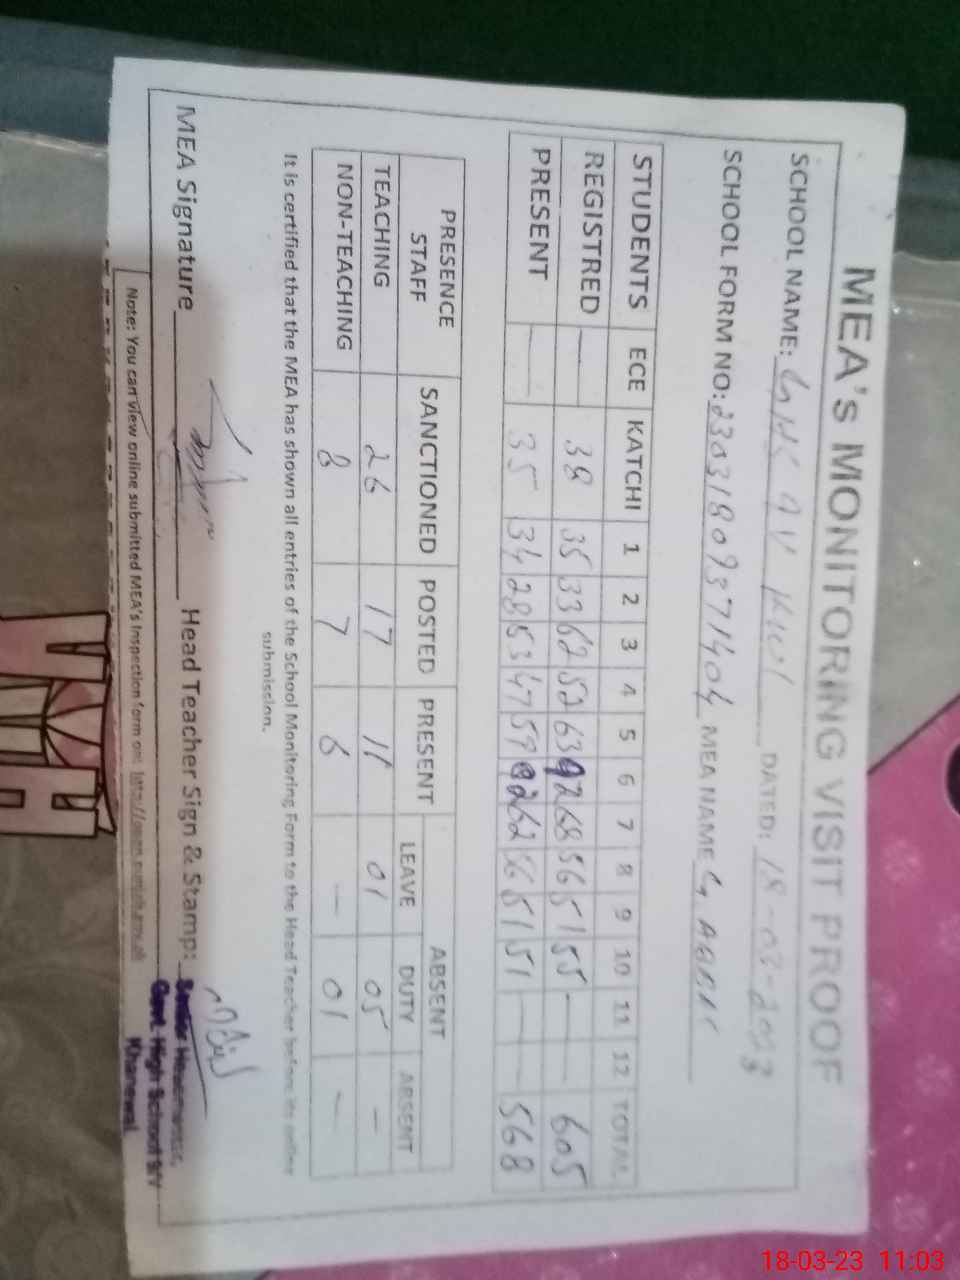 MEA's MONITORING VISIT PROOF
SCHOOL NAME: DATED: 18-03-2023
SCHOOL FORM NO: MEA NAME
STUDENTS ECE KATCHI 1 2 3 4 5 6 7 8 9 10 11 12 TOTAL
REGISTRED — 38 35 33 62 52 63 92 68 56 51 55 — — 605
PRESENT — 35 34 28 53 47 59 62 56 51 51 — — 568
PRESENCE STAFF SANCTIONED POSTED PRESENT ABSENT
LEAVE DUTY ABSENT
TEACHING 26 17 11 01 05 —
NON-TEACHING 8 7 6 — 01 —
It is certified that the MEA has shown all entries of the School Monitoring Form to the Head Teacher before its online
submission.
MEA Signature Head Teacher Sign & Stamp:
Senior Headmaster,
Govt. High School 9/V
Khanewal
Note: You can view online submitted MEA's Inspection form on:
18-03-23 11:03